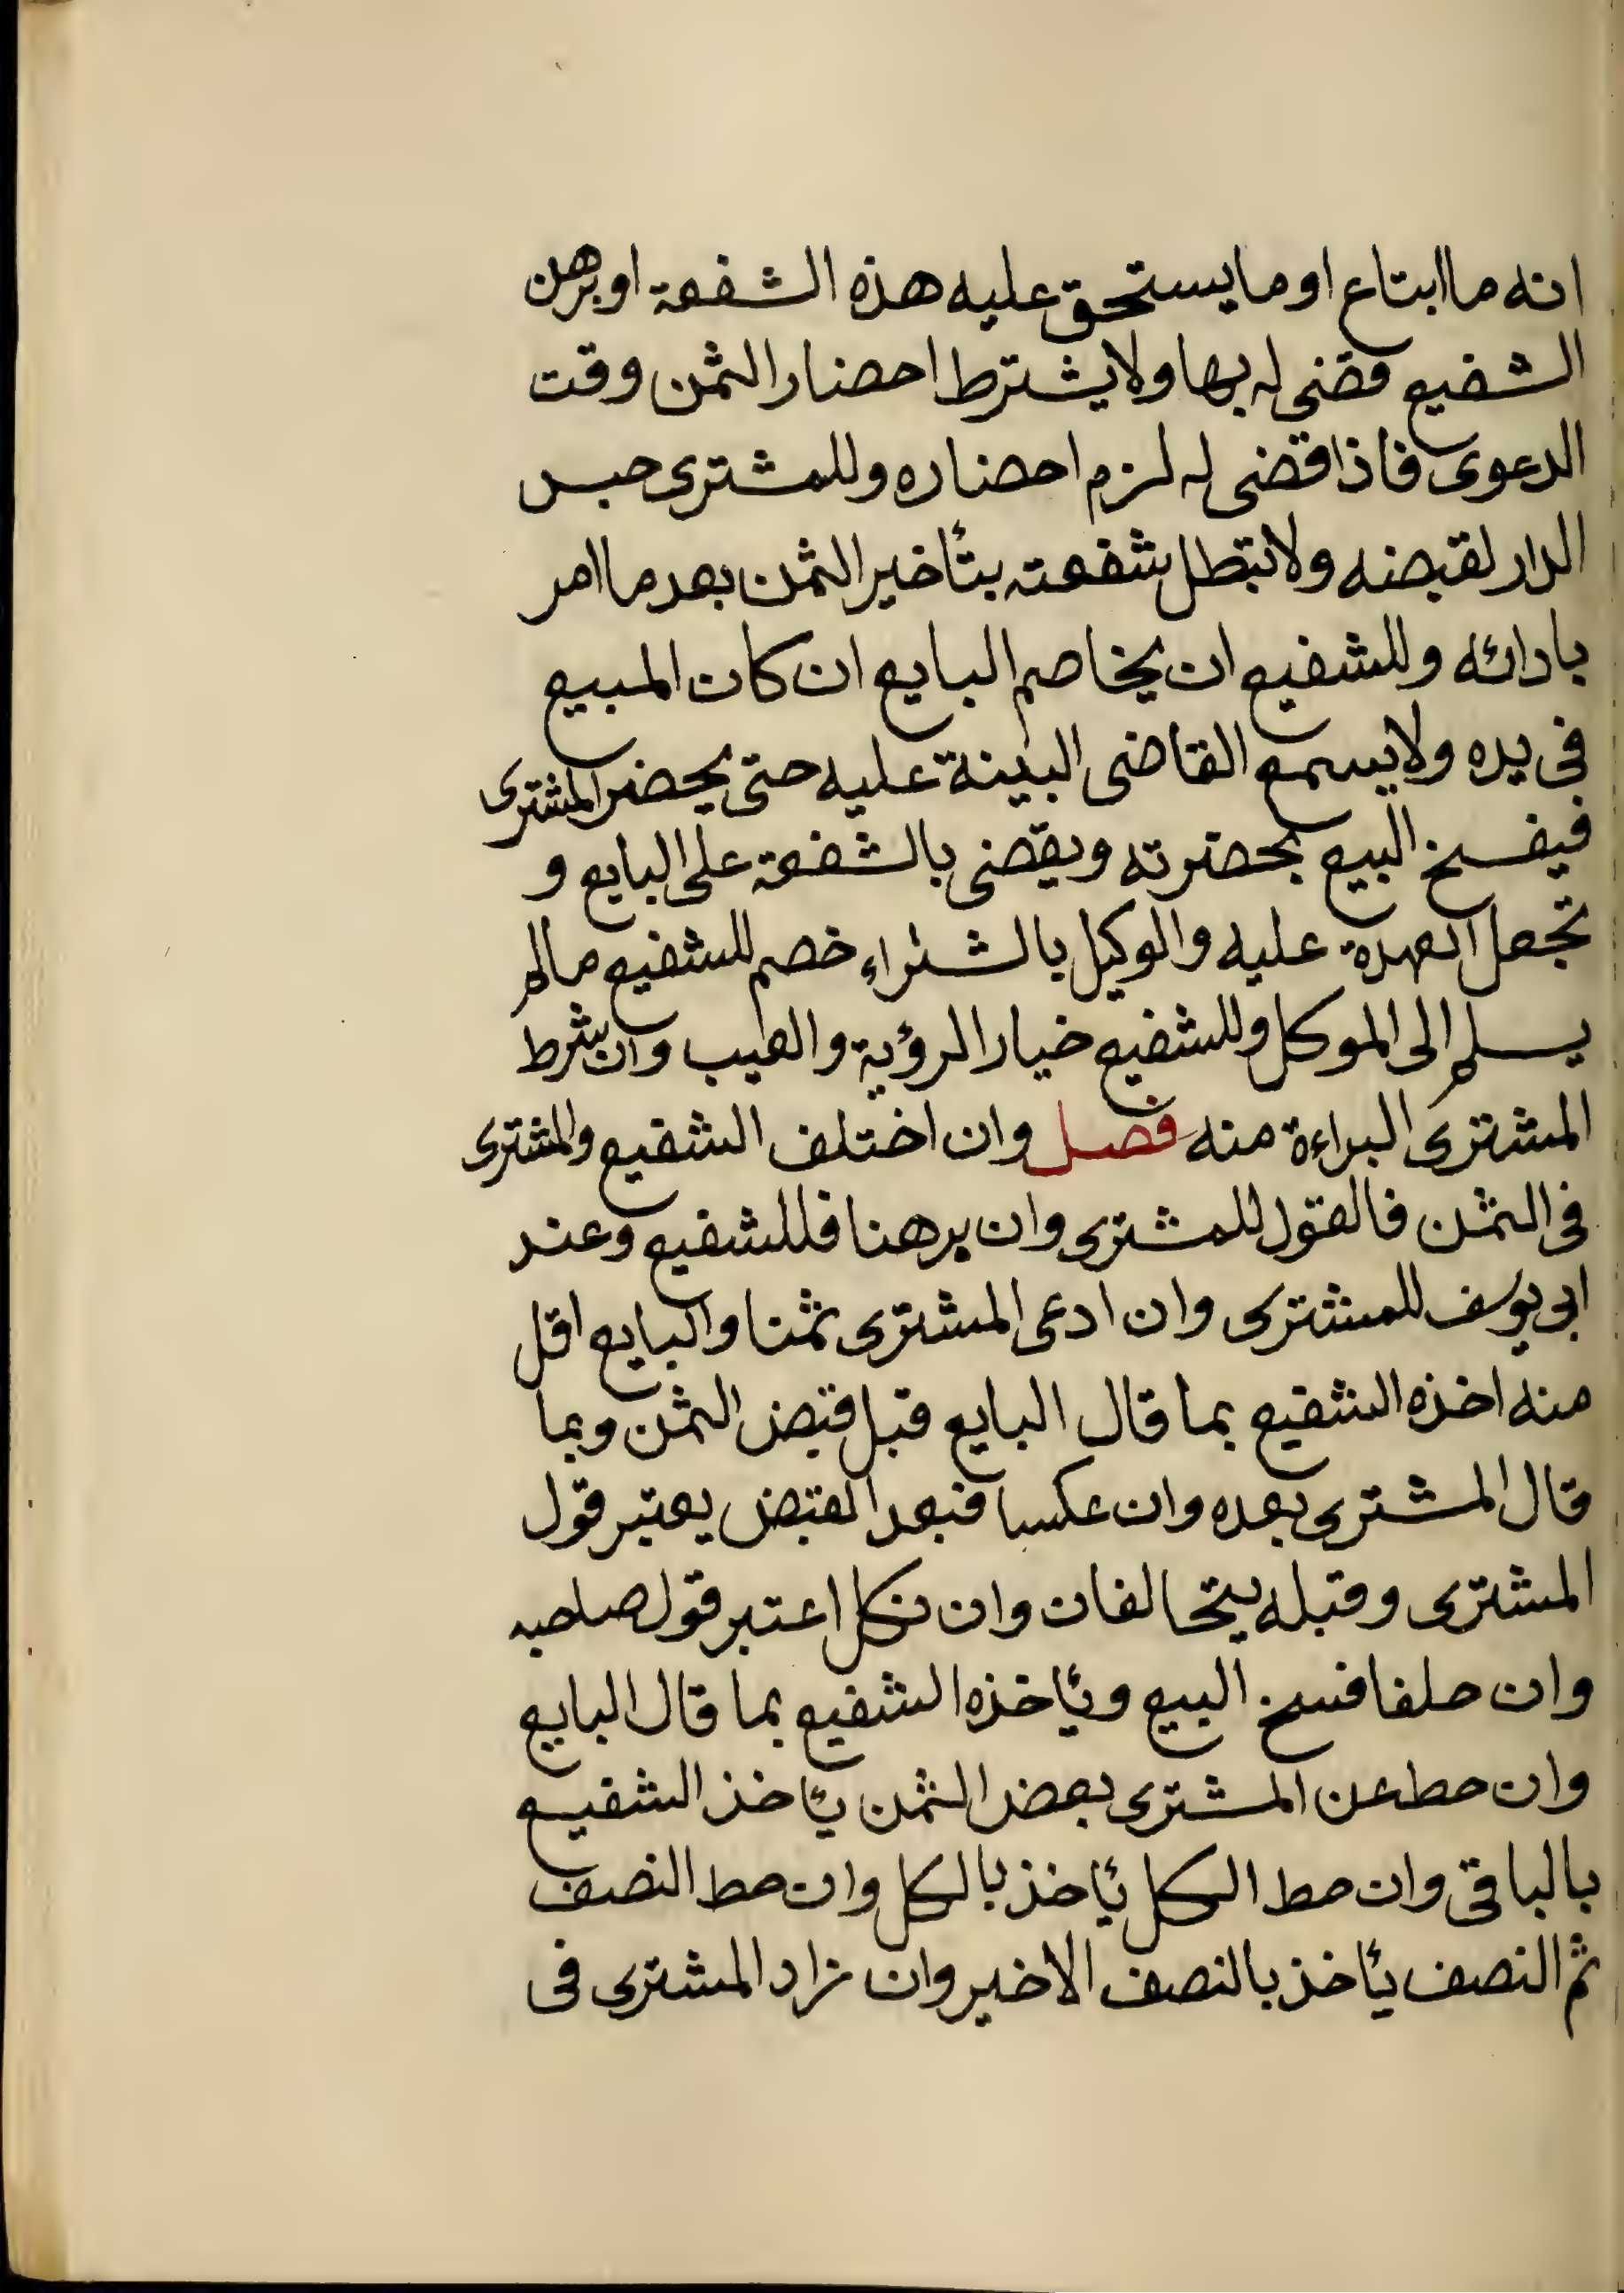 انه ما ابتاع او ما يستحق عليه هذه الشفعة او برهن
الشفيع قضى له بها ولا يشترط احضار الثمن وقت
الدعوى فاذا قضى له لزم احضاره وللمشترى حبس
الدار لقبضه ولا تبطل شفعته بتأخير الثمن بعد ما امر
بادائه وللشفيع ان يخاصم البايع ان كان المبيع
فى يده ولا يسمع القاضى البينة عليه حتى يحضر المشترى
فيفسخ البيع بحضرته ويقضى بالشفعة على البايع و
تجعل العهدة عليه والوكيل بالشراء خصم للشفيع مالم
يسلم الى الموكل وللشفيع خيار الرؤية والعيب وان شرط
المشترى البراءة منه فصل وان اختلف الشفيع والمشترى
فى الثمن فالقول للمشترى وان برهنا فللشفيع وعند
ابى يوسف للمشترى وان ادعى المشترى ثمنا والبايع اقل
منه اخذه الشفيع بما قال البايع قبل قبض الثمن وبما
قال المشترى بعده وان عكسا فبعد القبض يعتبر قول
المشترى وقبله يتحالفان وان نكل اعتبر قول صاحبه
وان حلفا فسخ البيع ويأخذه الشفيع بما قال البايع
وان حط عن المشترى بعض الثمن يأخذ الشفيع
بالباقى وان حط الكل يأخذ بالكل وان حط النصف
ثم النصف يأخذ بالنصف الاخير وان زاد المشترى فى